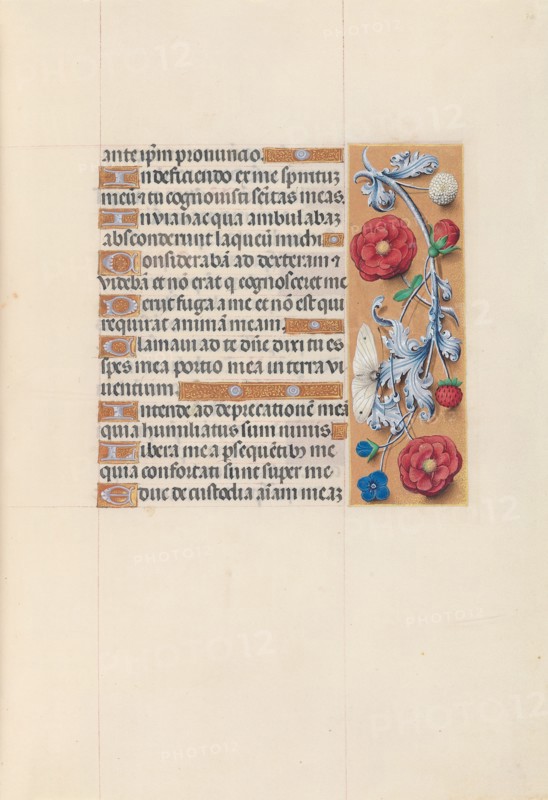 ante ip̄m pronuncio.
In deficiendo ex me spiritū
meū ⁊ tu cognouisti semitas meas.
In via hac qua ambulabaꝫ
absconderunt laqueū michi
Considerabā ad dexteram ⁊
videbā et nō erat q̄ cognosceret me
Perijt fuga a me et nō est qui
requirat animā meam.
Clamaui ad te dn̄e dixi tu es
spes mea portio mea in terra vi
uentium.
Intende ad deprecationē meā
quia humiliatus sum nimis
Libera me a ꝑsequētibꝫ me
quia confortati sunt super me
Educ de custodia aīam meaꝫ
PHOTO12